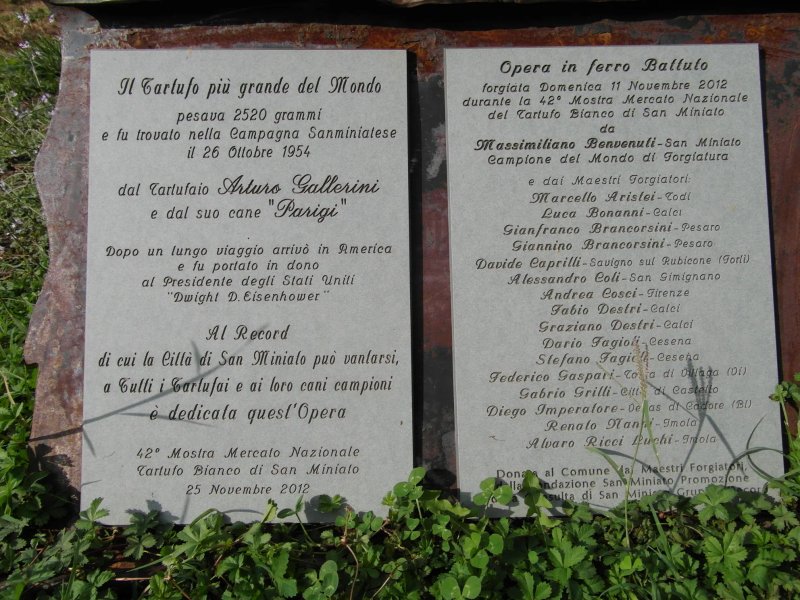 Il Tartufo più grande del Mondo
pesava 2520 grammi
e fu trovato nella Campagna Sanminiatese
il 26 Ottobre 1954
dal Tartufaio Arturo Gallerini
e dal suo cane "Parigi"
Dopo un lungo viaggio arrivò in America
e fu portato in dono
al Presidente degli Stati Uniti
"Dwight D. Eisenhower"
Al Record
di cui la Città di San Miniato può vantarsi,
a Tutti i Tartufai e ai loro cani campioni
è dedicata quest'Opera
42° Mostra Mercato Nazionale
Tartufo Bianco di San Miniato
25 Novembre 2012
Opera in ferro Battuto
forgiata Domenica 11 Novembre 2012
durante la 42° Mostra Mercato Nazionale
del Tartufo Bianco di San Miniato
da
Massimiliano Benvenuti-San Miniato
Campione del Mondo di Forgiatura
e dai Maestri Forgiatori:
Marcello Aristei-Todi
Luca Bonanni-Calci
Gianfranco Brancorsini-Pesaro
Giannino Brancorsini-Pesaro
Davide Caprilli-Savigno sul Rubicone (Forlì)
Alessandro Coli-San Gimignano
Andrea Cosci-Firenze
Fabio Destri-Calci
Graziano Destri-Calci
Dario Fagioli-Cesena
Stefano Fagioli-Cesena
Federico Gaspari- di (Vi)
Gabrio Grilli-Città di Castello
Diego Imperatore- di Cadore (Bl)
Renato Nanni-Imola
Alvaro Ricci Lucchi-Imola
Donata al Comune dai Maestri Forgiatori,
Fondazione San Miniato Promozione
di San Miniato